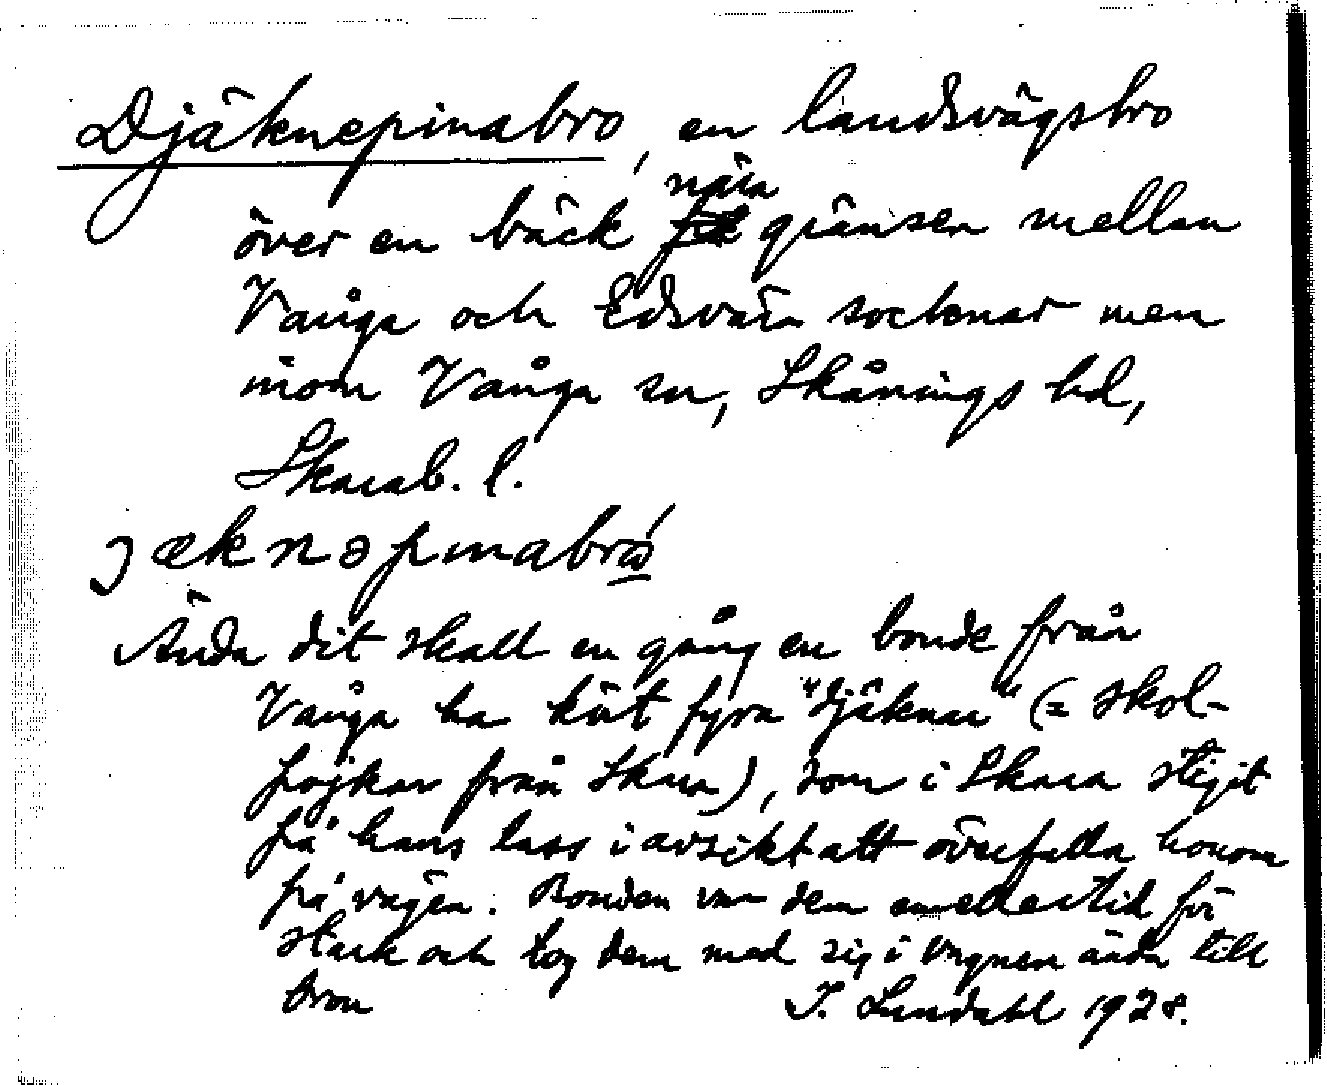 Djäknepinabro, en landsvägsbro
över en bäck nära gränsen mellan
Vånga och Edsvära socknar men
inom Vånga sn, Skånings hd,
Skarab. l.
Ända dit skall en gång en bonde från
Vånga ha kört fyra "djäknar" (= skol-
pojkar från Skara), som i Skara stigit
på hans lass i avsikt att överfalla honom
på vägen. Bonden var dem emellertid för
stark och tog dem med sig i vagnen ända till
bron
I. Lundahl 1928.